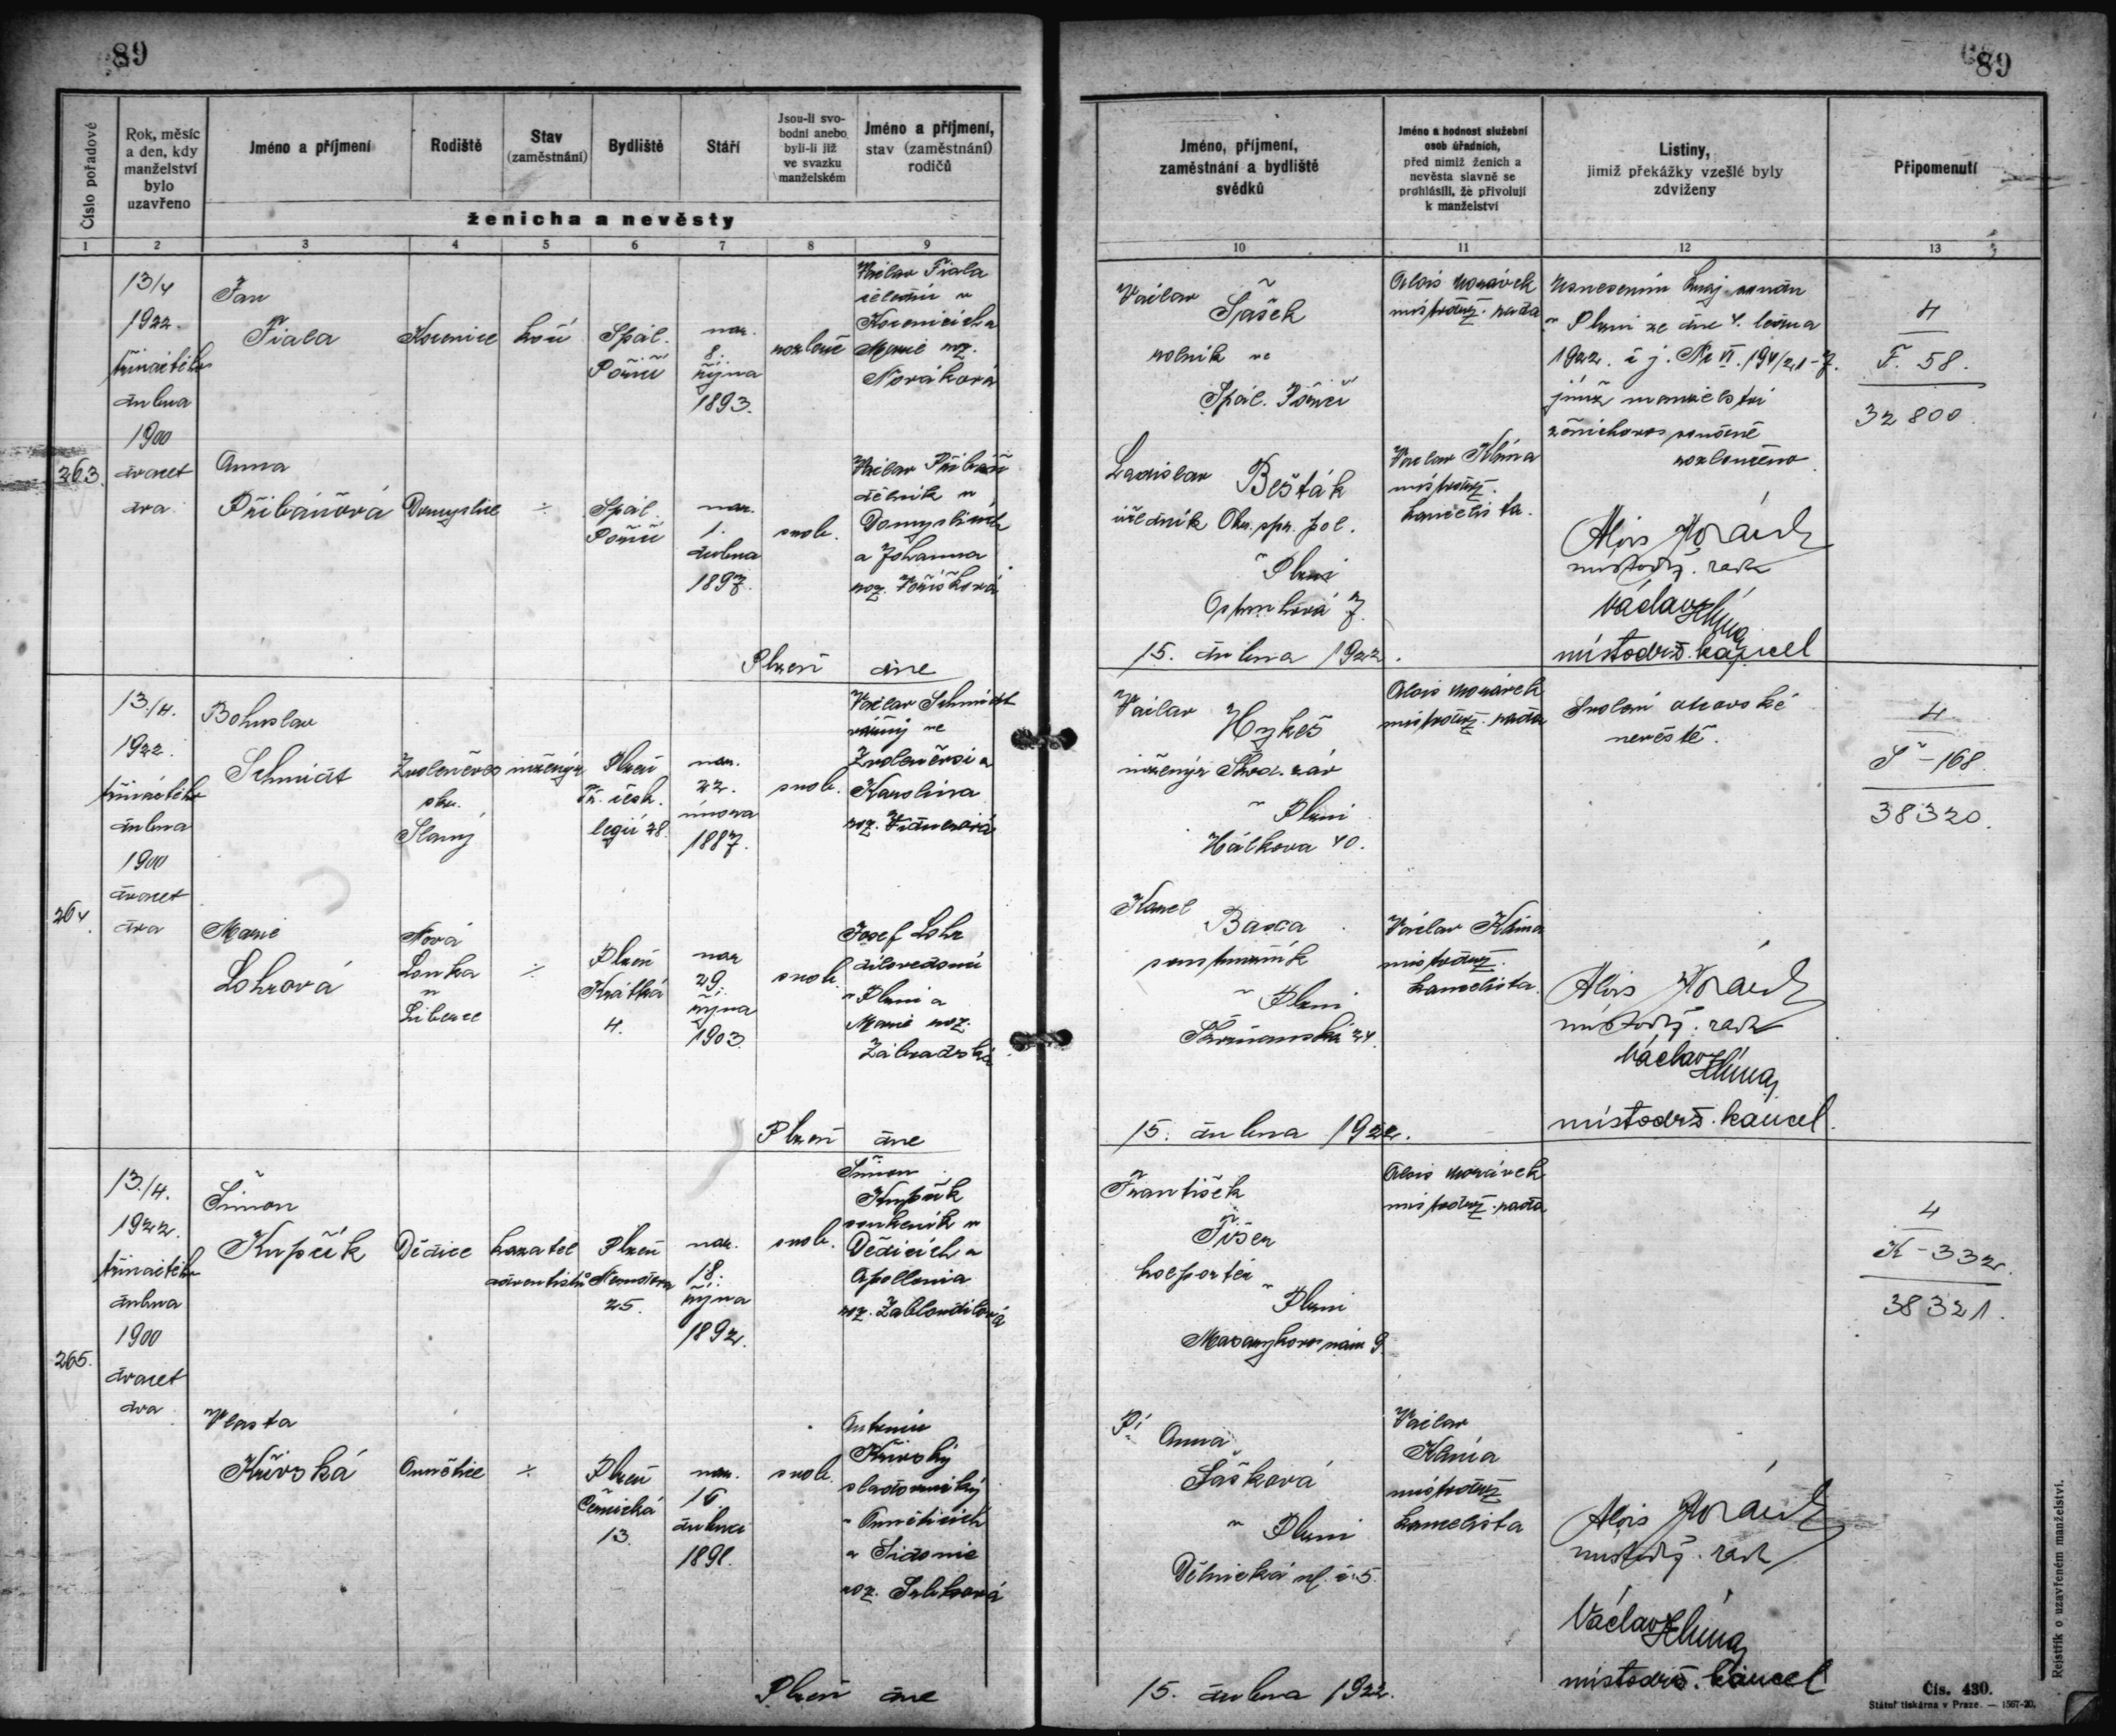 89
89
Číslo pořadové
Rok, měsíc
a den, kdy
manželství
bylo
uzavřeno
Jméno a příjmení
Rodiště
Stav
(zaměstnání)
Bydliště
Stáří
Jsou-li svo-
bodni anebo
byli-li již
ve svazku
manželském
Jméno a příjmení,
stav (zaměstnání)
rodičů
ženicha a nevěsty
Jméno, příjmení,
zaměstnání a bydliště
svědků
Jméno a hodnost služební
osob úřadních,
před nimiž ženich a
nevěsta slavně se
prohlásili, že přivolují
k manželství
Listiny,
jimiž překážky vzešlé byly
zdviženy
Připomenutí
1 2 3 4 5 6 7 8 9
10 11 12 13
263.
13/4
1922.
třináctého
dubna
1900
dvacet
dva
Jan
Fiala
kočí
Spál.
Poříčí
nar.
8.
října
1893.
rozlouč
Václav Fiala
Marie roz.
Nováková
Anna
Přibáňová
Domyslice
÷
Spál.
Poříčí
nar.
1.
dubna
1897.
svob.
Václav Přibáň
dělník v
Domyslicích
a Johanna
roz. Voříšková
Plzeň dne
15. dubna 1922.
Václav
Šašek
rolník ve
Spál. Poříčí
Ladislav
Bešťák
úředník Okr. spr. pol.
v Plzni
7.
Alois Morávek
místodrž. rada
Václav Klíma
místodrž.
kancelista.
Usnesením kraj. soudu
v Plzni ze dne 4. ledna
1922. č j. Nc VI. 194/21-7.
jímž manželství
ženichovo
rozloučeno.
Alois Morávek
místodrž. rada
Václav Klíma
místodrž. kancel
4
F. 58.
32800.
264.
13./4.
1922.
třináctého
dubna
1900
dvacet
dva
Bohuslav
Schmidt
Zvoleněves
okr.
Slaný
inženýr
Plzeň
Tř. česk.
legií 28.
nar.
22.
února
1887.
svob.
Václav Schmidt
ve
Zvoleněvsi a
Karolina
roz.
Marie
Lohrová
Nová
Louka
u
Liberce
÷
Plzeň
Krátká
4.
nar
29.
října
1903.
svob.
Josef Lohr
dílovedoucí
v Plzni a
Marie roz.
Zahradská
Plzeň dne
15. dubna 1922.
Václav
Hykeš
inženýr Škod. záv
v Plzni
Hálkova 40.
Karel
v Plzni
24.
Alois Morávek
místodrž. rada
Václav Klíma
místodrž.
kancelista.
Svolení otcovské
nevěstě.
Alois Morávek
místodrž. rada
Václav Klíma
místodrž. kancel.
4
Š-168
38320.
265.
13./4.
1922.
třináctého
dubna
1900
dvacet
dva
Šimon
Kupčík
Dědice
kazatel
adventistů
Plzeň
25.
nar.
18.
října
1892.
svob.
Šimon
Kupčík
soukeník v
Dědicích a
Apollonia
roz. Zabloudilová
Vlasta
Křivská
÷
Plzeň
13.
nar.
16
dubna
1898.
svob.
Antonín
Křivský
a Sidonie
roz.
Plzeň dne
15. dubna 1922.
František
Fišer
kolportér
v Plzni
Masarykovo nám 9.
Pí
Anna
Šašková
v Plzni
Dělnická ul. č. 5.
Alois Morávek
místodrž. rada
Václav
Klíma
místodrž
kancelista
Alois Morávek
místodrž. rada
Václav Klíma
místodrž. kancel
4
K-332.
38321.
Čís. 430.
Státní tiskárna v Praze. — 1567-20.
Rejstřík o uzavřeném manželství.